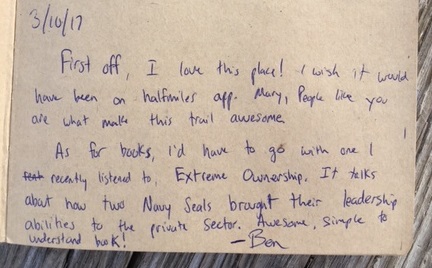 3/10/17
First off, I love this place! I wish it would
have been on halfmiles app. Mary, People like you
are what make this trail awesome.
As for books, I'd have to go with one I
recently listened to, Extreme Ownership. It talks
about how two Navy Seals brought their leadership
abilities to the private sector. Awesome, simple to
understand book!
-Ben